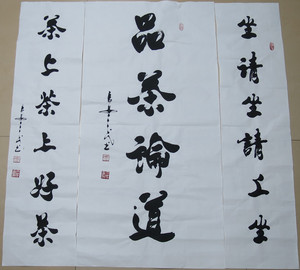 坐請坐請上坐
品茶論道
茶上茶上好茶